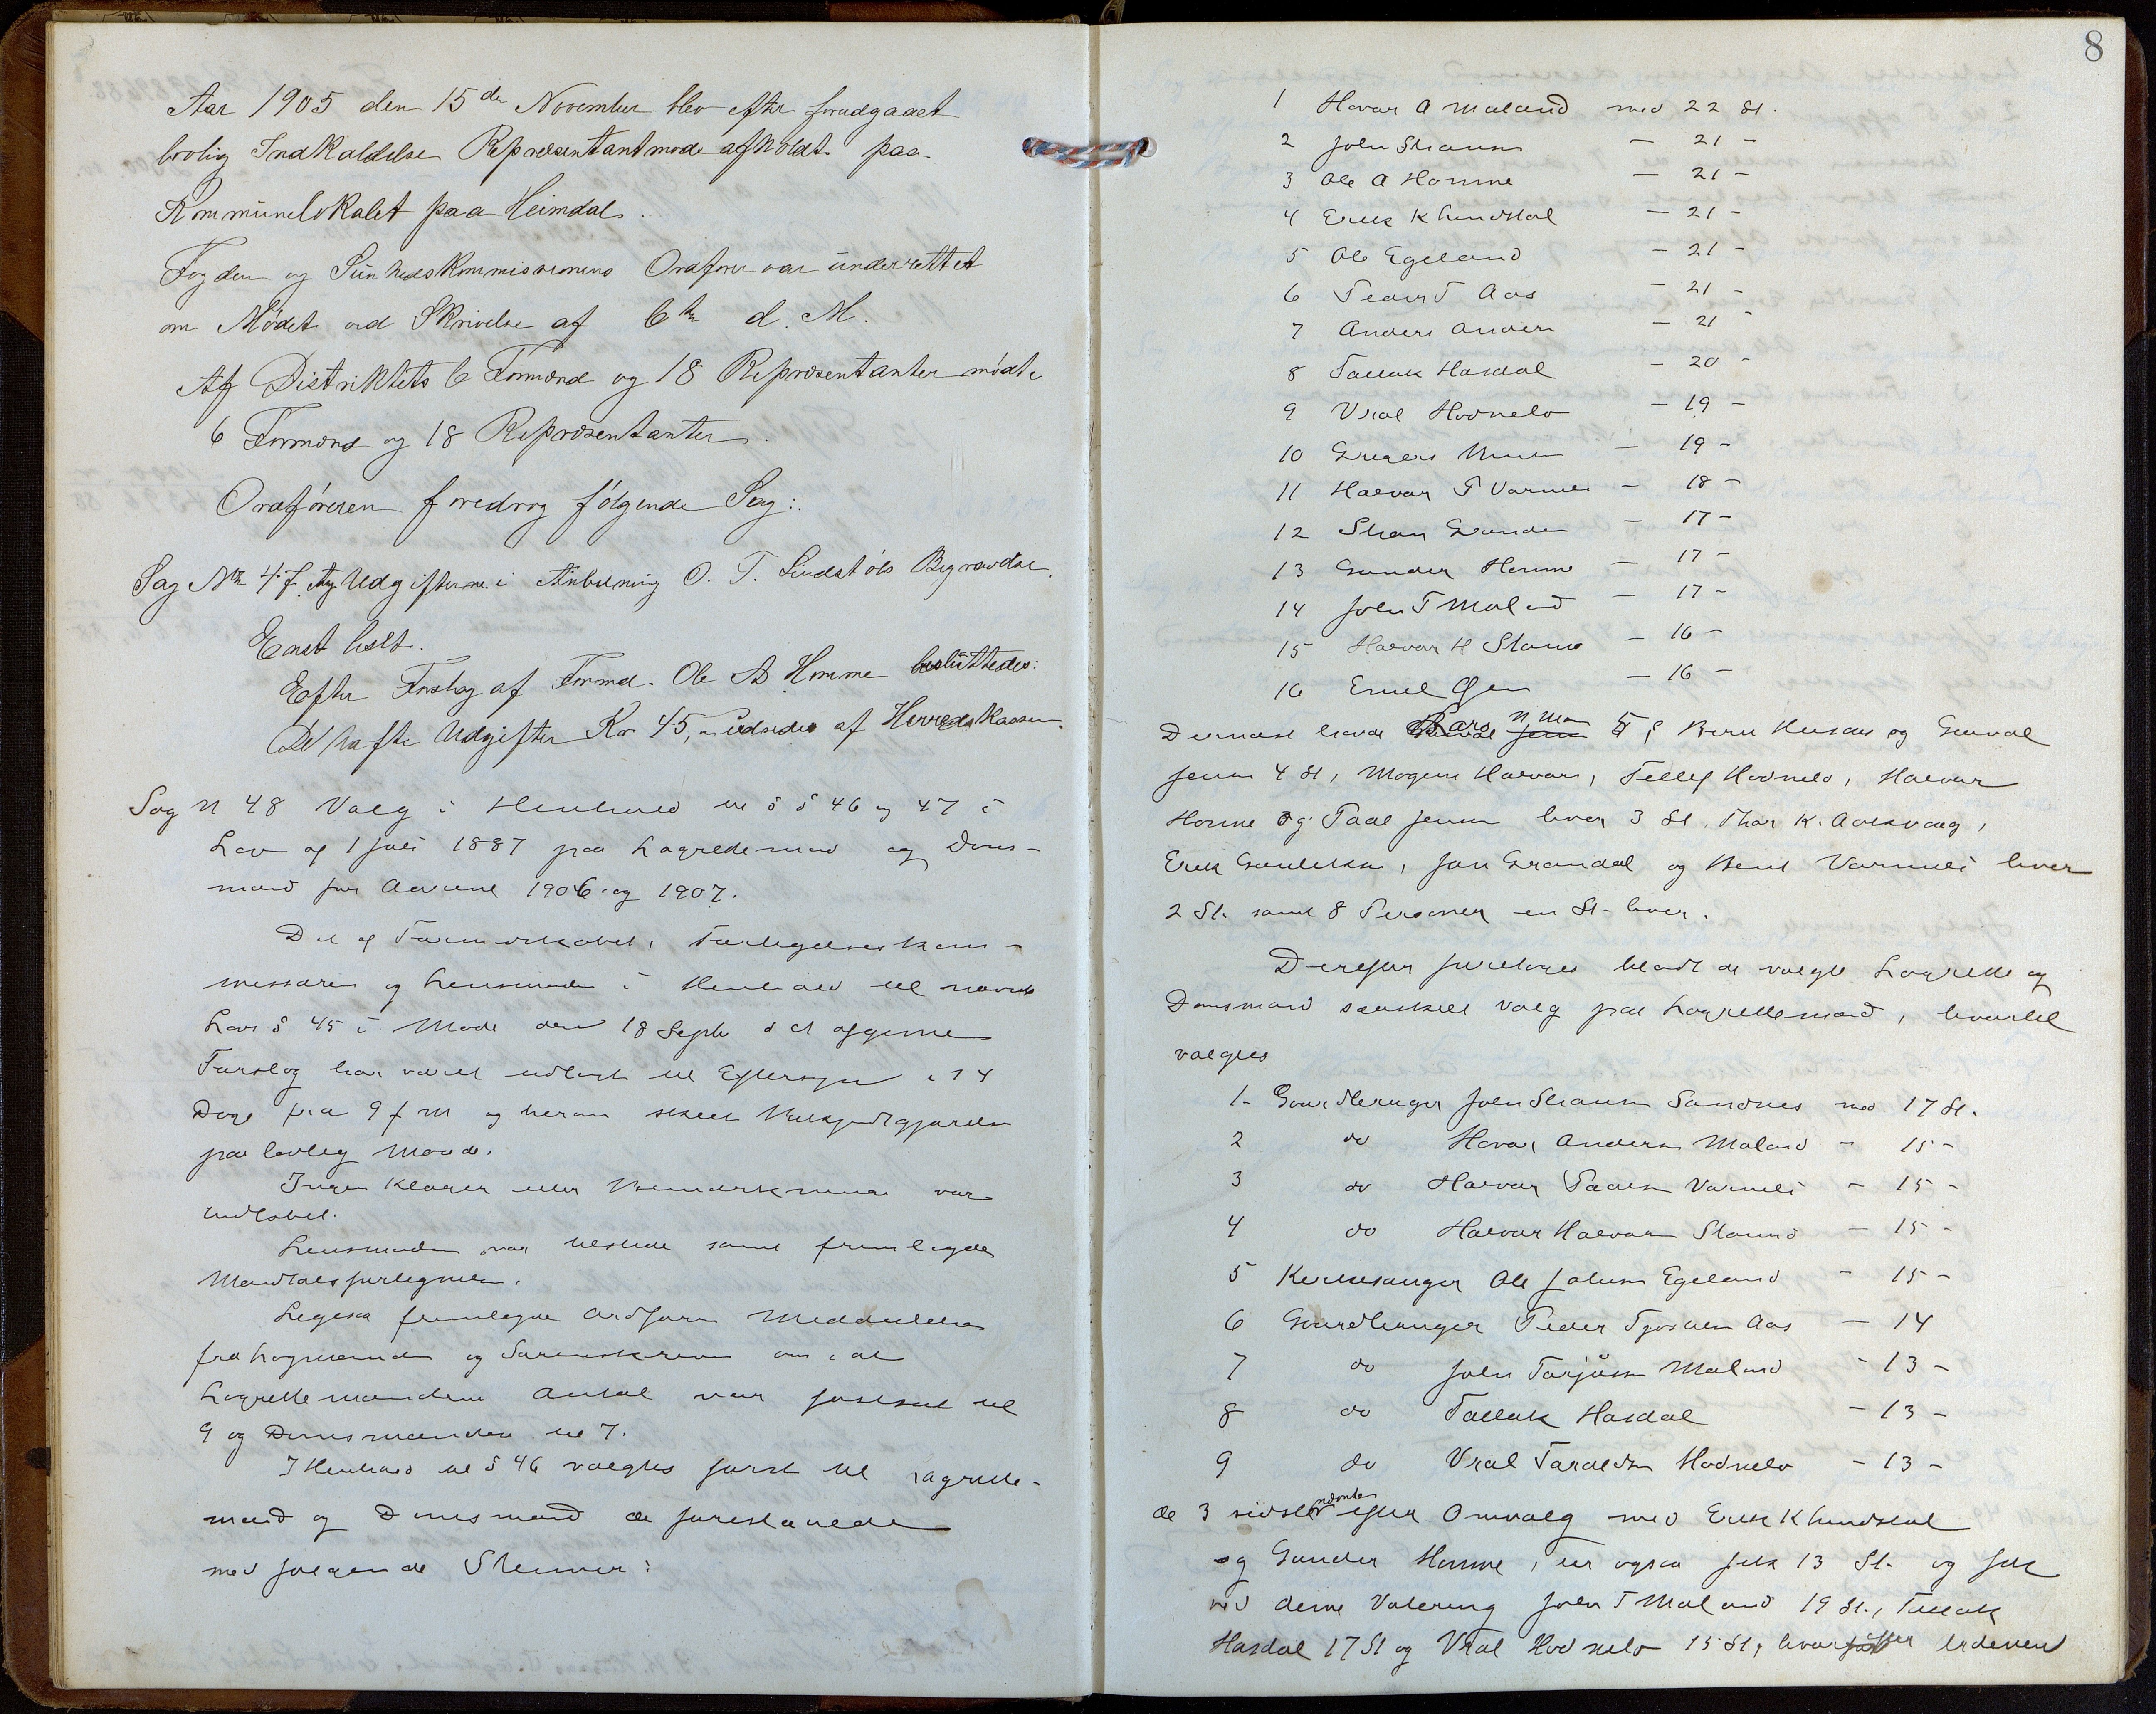 Aar 1905 den 15de November blev efter forudgaaet
lovlig Indkaldelse Repræsentantmøde afholdt paa
Kommunelokalet paa Heimdal.
Fogden og Sundhedskommissionens Ordfører var underrettet
om Mødet ved Skrivelse af 6te d. M.
Af Distriktets 6 Formænd og 18 Repræsentanter mødte
6 Formænd og 18 Repræsentanter.
Ordføreren foredrog følgende Sag:
Sag No 47. Udgifterne i Anledning O. T. Lindstøls Begravelse.
Enst. beslt.
Efter Forslag af Formd. Ole A Homme besluttedes:
De hafte Udgifter Kr 45,- udredes af Herredskassen.
Sag N 48 Valg i Henhold til § § 46 og 47 i
Lov af 1 Juli 1887 paa Lagrettemænd og Doms-
mænd for Aarene 1906 og 1907.
Det af Formandskabet, Forligelseskom-
missæren og Lensmanden i Henhold til nævnte
Lovs § 45 i Møde den 18 Septb d A afgivne
Forslag har været udlagt til Eftersyn i 14
Dage fra 9 f M og herom skeet Bekjendtgjørelse
paa lovlig Maade.
Ingen Klager eller Bemærkninger var
indløbet.
Lensmanden var tilstede samt fremlagde
Mandtalsfortegnelsen.
Ligesaa fremlagde Ordføreren Meddelelse
fra Lagmanden og Sorenskriveren om, at
Lagrettemændenes Antal var fastsat til
9 og Domsmændene til 7.
I Henhold til § 46 valgtes først til Lagrette-
mænd og Domsmænd de forestaaende
med følgende Stemmer:
8
1 Hovar A Maland med 22 St.
2 John Stiansen - 21 -
3 Ole A Homme - 21 -
4 Erik K Lindstøl - 21 -
5 Ole Egeland - 21 -
6 Peder T Aas - 21 -
7 Anders Andersen - 21 -
8 Tallak Hasdal - 20 -
9 Vral Hovnelo - 19 -
10 Gregers - 19 -
11 Halvor P Varmeli - 18 -
12 Stian - 17 -
13 Gunder Homme - 17 -
14 John T Maland - 17 -
15 Halvor H Stamsø - 16 -
16 Emil - 16 -
Dernæst havde Lars N. Moe 5, og Gunval
Jensen 4 St, Mogens Halvorsen, Tellef Hovnelo, Halvor
Homme og Paal Jensen hver 3 St, Thor K. Aaksvaag,
Erik Gundersen, Jon Grandal og Bent Varmeli hver
2 St. samt 8 Personer en St. hver.
Derefter foretoges blandt de valgte Lagrette og
Domsmænd særskilt Valg paa Lagrettemænd, hvortil
valgtes
1. Gaardbruger John Stiansen Sandnes med 17 St.
2 do Hovar Andersen Maland - 15 -
3 do Halvor Paalsen Varmeli - 15 -
4 do Halvor Halvorsen Stamsø - 15 -
5 Kirkesanger Ole Johnsen Egeland - 15 -
6 Gaardbruger Peder Tjøstolsen Aas - 14
7 do John Torjusen Maland - 13 -
8 do Tallak Hasdal - 13 -
9 do Vral Taraldsen Hovnelo - 13 -
de 3 sidste nævnte efter Omvalg med Erik K Lindstøl
og Gunder Homme, der ogsaa fik 13 St. og fik
ved denne Votering John T Maland 19 St., Tallak
Hasdal 17 St og Vral Hovnelo 15 St,